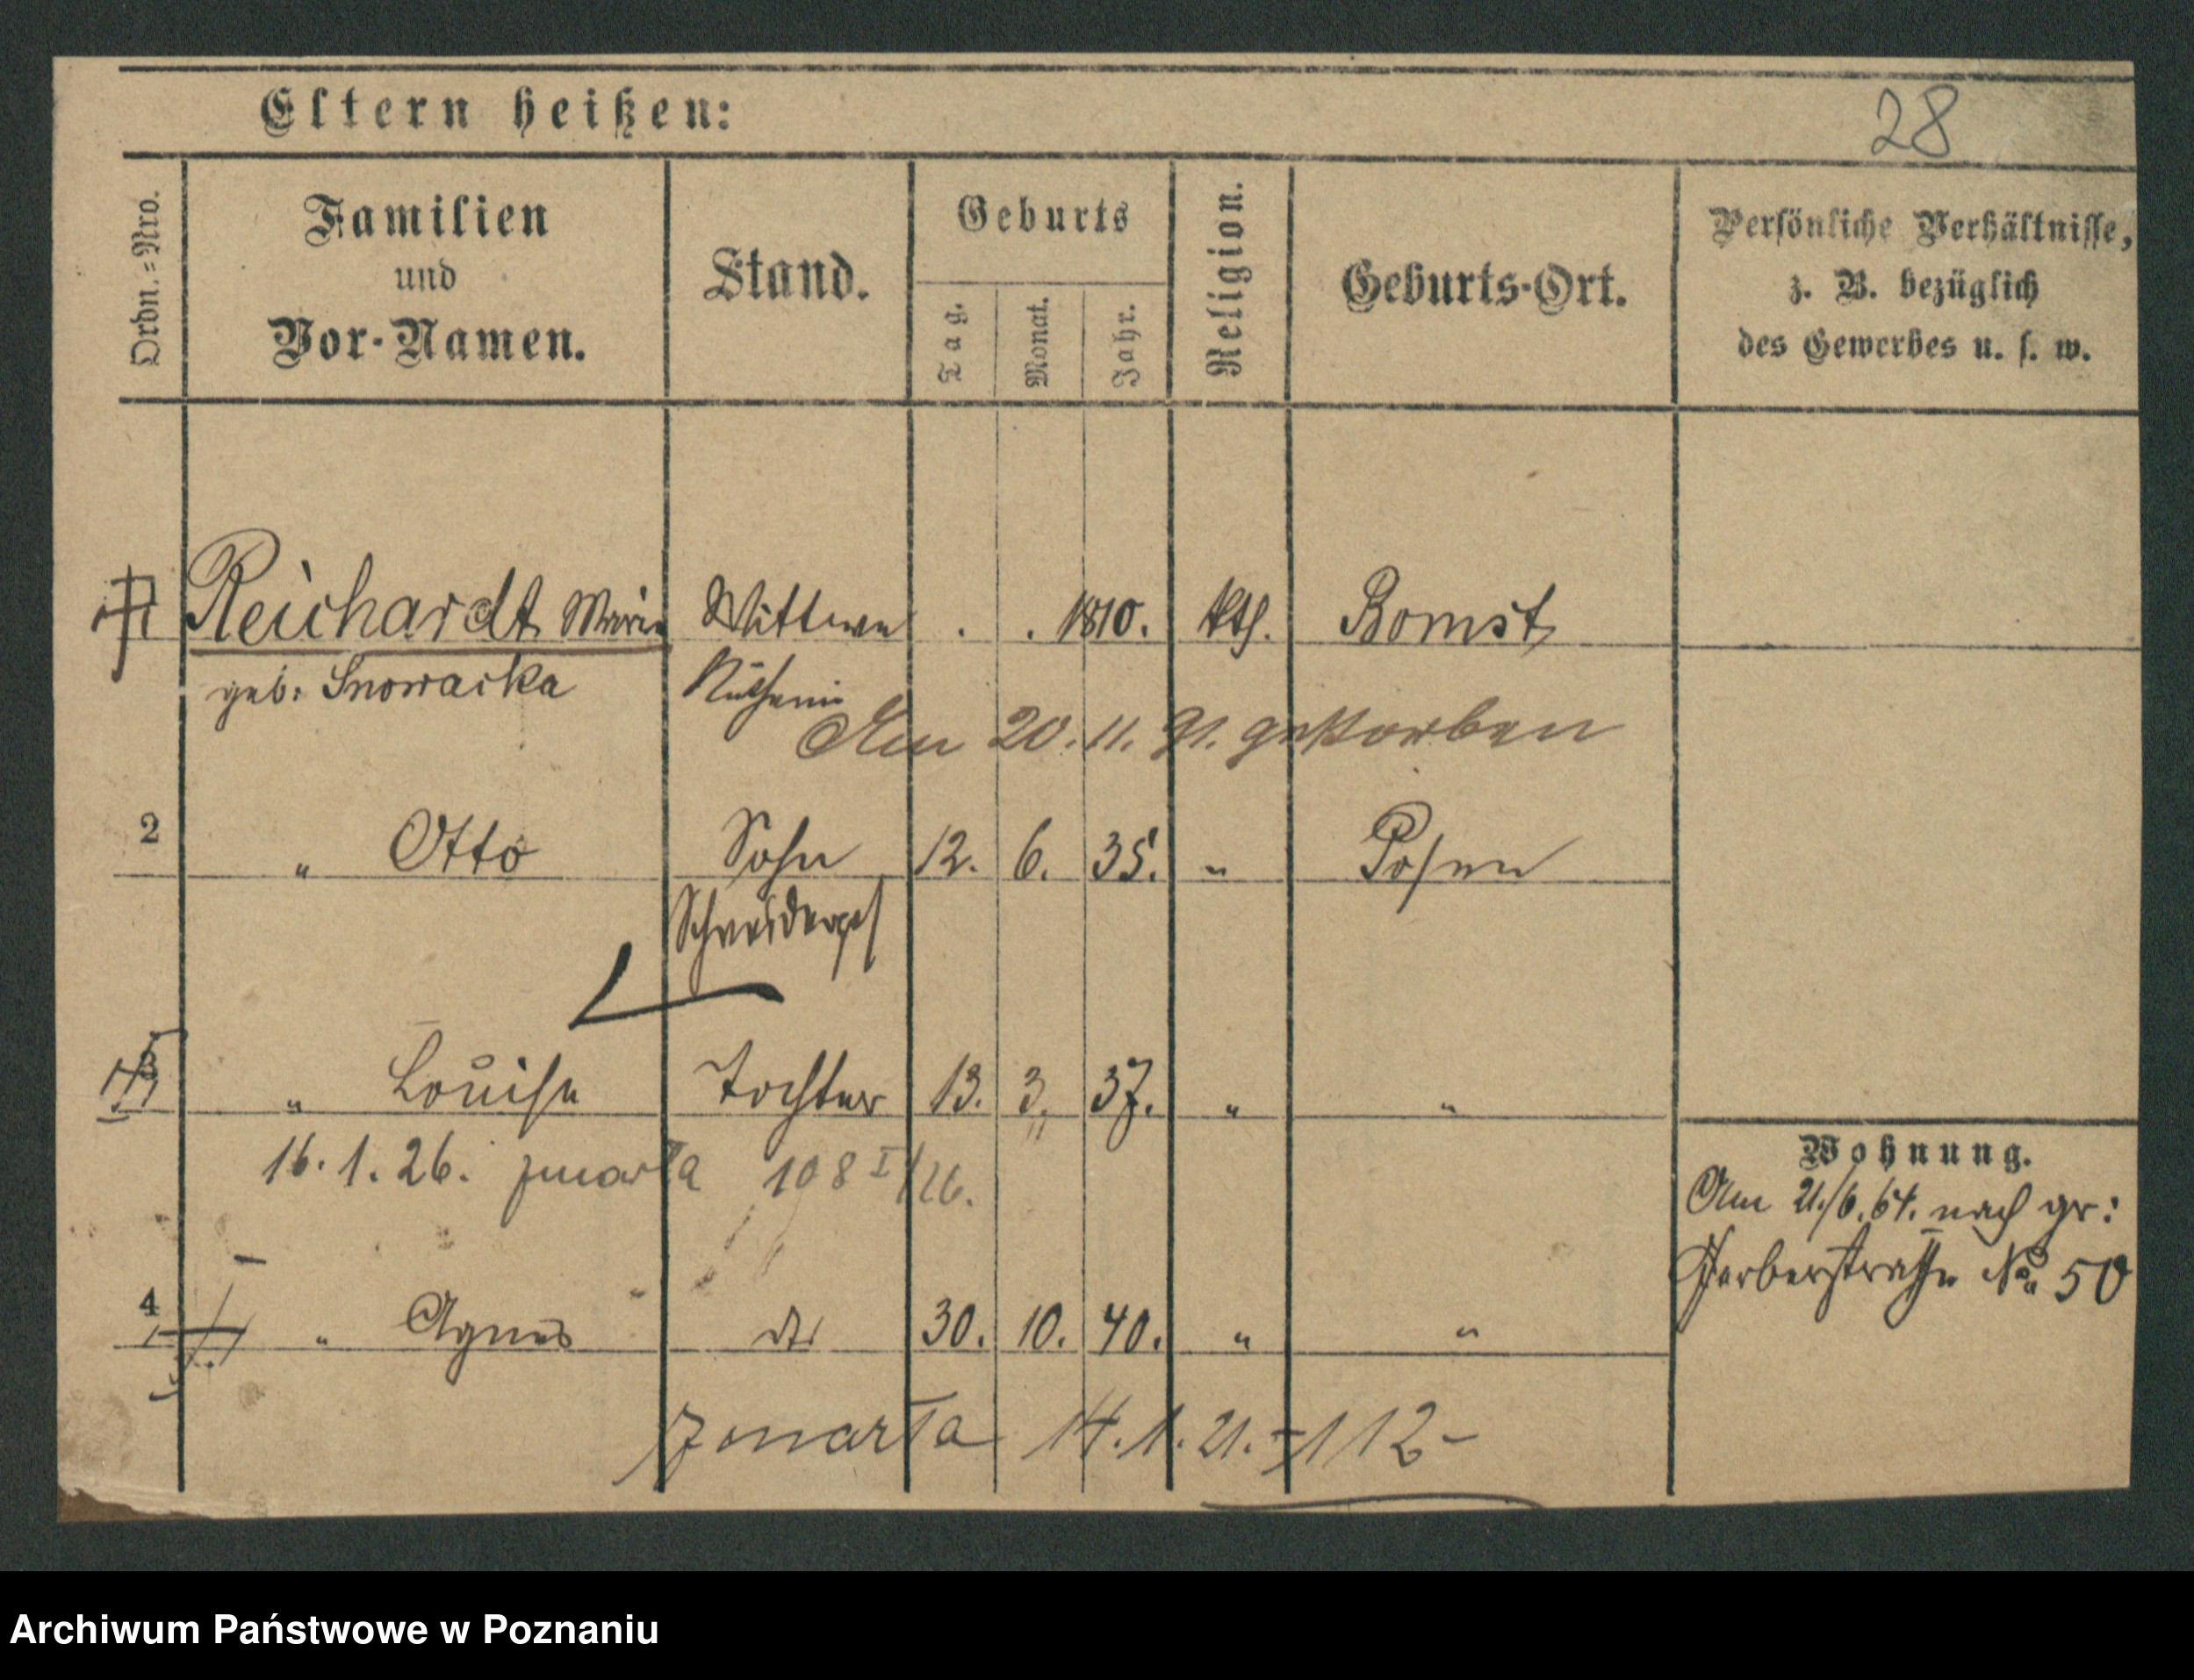 Eltern heißen:
28
Ordn.=Nro.
Familien
und
Vor-Namen.
Stand.
Geburts
Tag.
Monat.
Jahr.
Religion.
Geburts-Ort.
Persönliche Verhältnisse,
z. B. bezüglich
des Gewerbes u. s. w.
Reichardt Marie Wittwe . . 1810. kth. Bomst
geb: Snowacka Näherin
Am 20. 11. 91. gestorben
2 " Otto Sohn 12. 6. 35. " Posen
Schneiderges
3 " Louise Tochter 13. 3. 37. " "
16. 1. 26. zmarła 108 I/26.
Wohnung.
Am 21./6. 64. nach gr:
Gerberstraße No 50
4 " Agnes dto 30. 10. 40. " "
zmarła 14. 1. 21. - 112 -
Archiwum Państwowe w Poznaniu